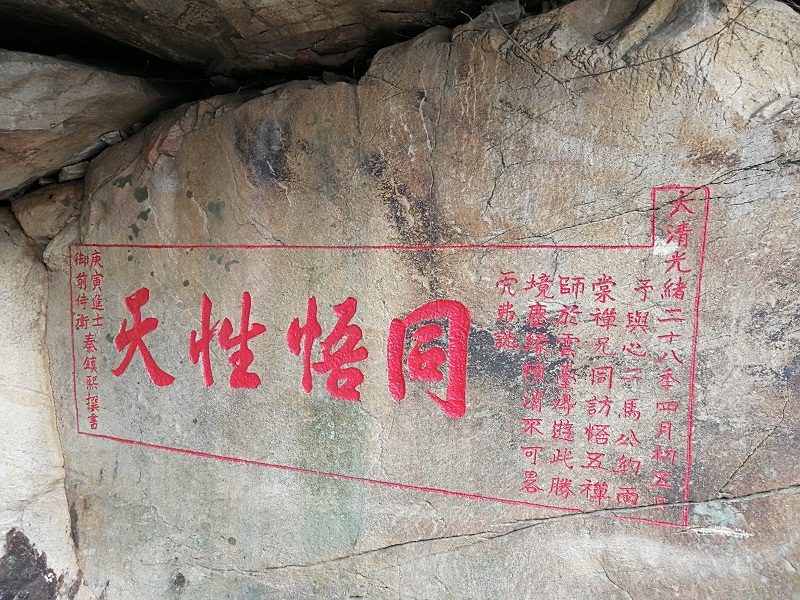 大清光緒二十八年四月初五日
予與心一馬公約兩
棠禪兄同訪悟五禪
師於雲臺得遊此勝
境塵緣頓消不可畧
而弗誌
同悟性天
庚寅進士秦鎮熙撰書
御前侍衛